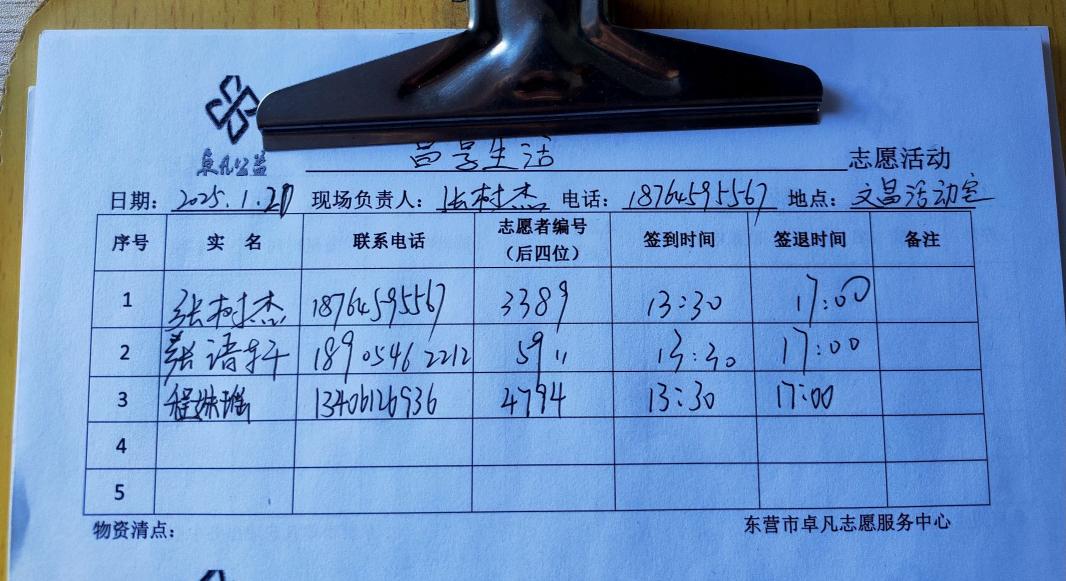 卓凡公益
昌景生活 志愿活动
日期: 2025.1.21 现场负责人: 张树杰 电话: 18764595567 地点: 文昌活动室
序号 实 名 联系电话 志愿者编号(后四位) 签到时间 签退时间 备注
1 张树杰 18764595567 3389 13:30 17:00
2 张 18905462212 5911 13:30 17:00
3 程姝瑶 13406126936 4794 13:30 17:00
4
5
物资清点: 东营市卓凡志愿服务中心